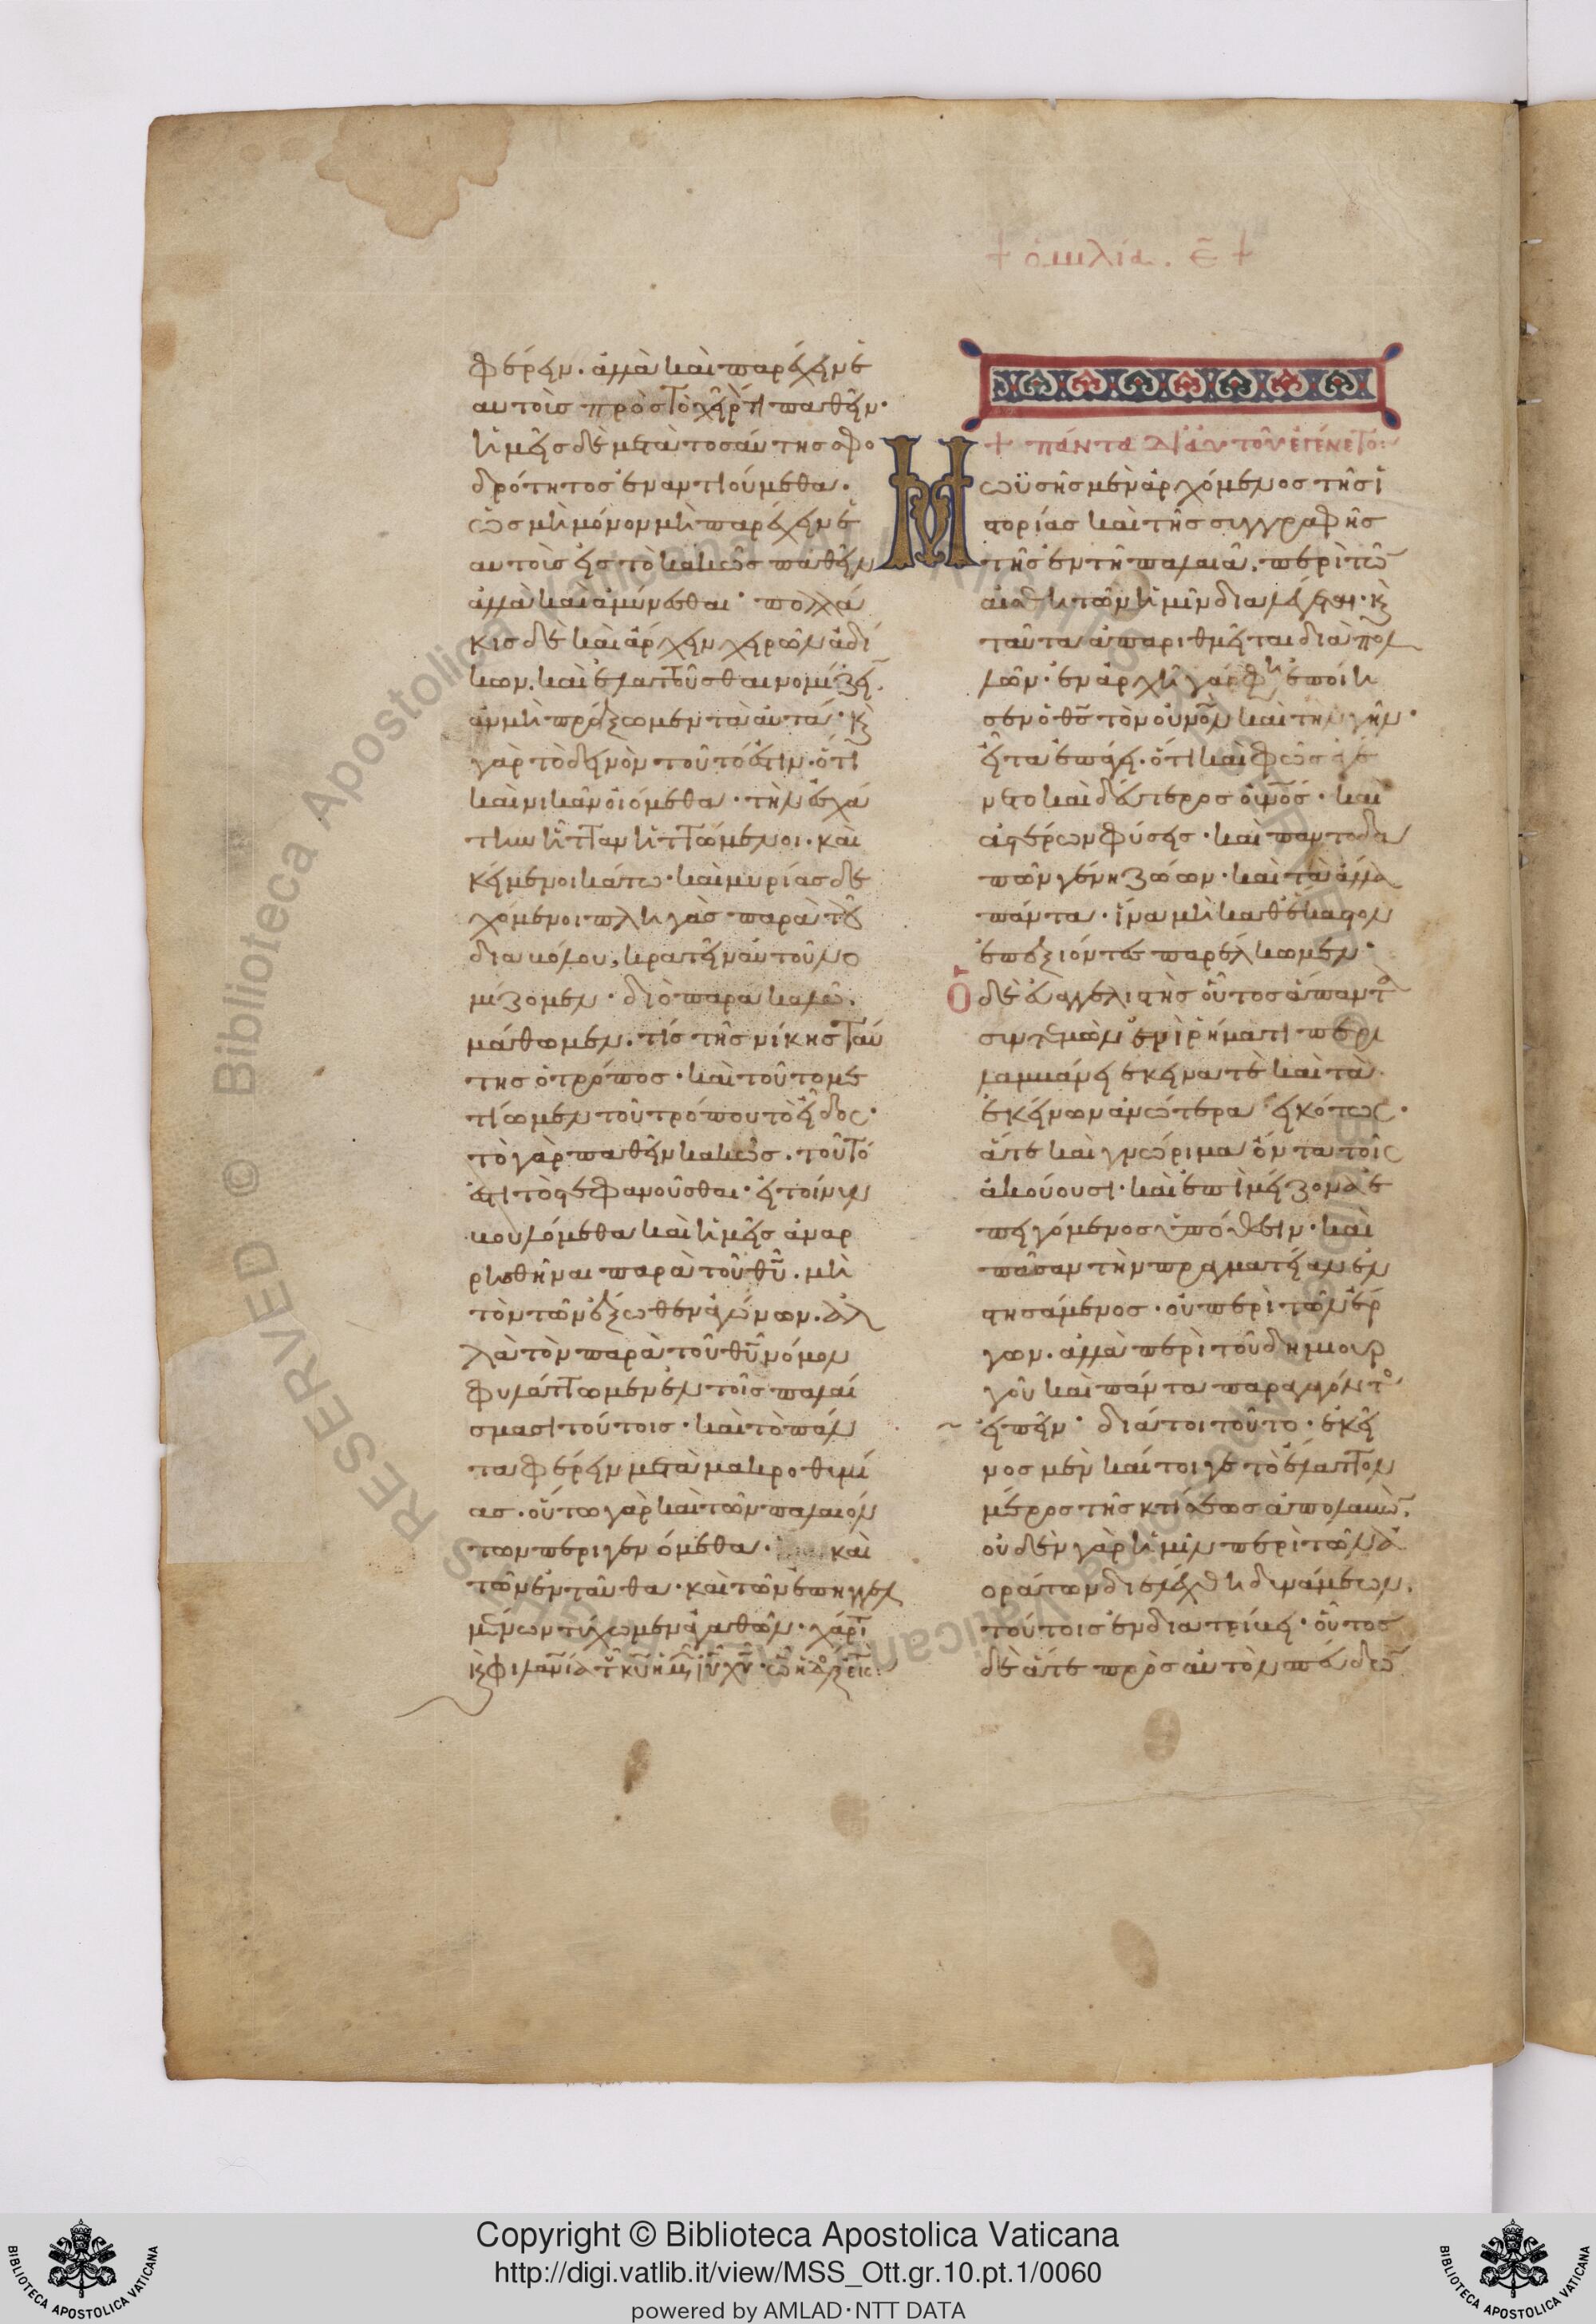 + ὁμιλία. ε̄ +
φέρειν. ἀλλὰ καὶ παρέχειν ἑ
αυτοὺς πρὸς τὸ χεῖρόν τι παθεῖν·
ἡμεῖς δὲ μετὰ τοσαύτης σφο
δρότητος ἐναντιούμεθα.
ὡς μὴ μόνον μὴ παρέχειν ἑ
αυτοὺς εἰς τὸ κακῶς παθεῖν
ἀλλὰ καὶ ἀμύνεσθαι· πολλά
κις δὲ καὶ ἄρχειν χειρῶν ἀδί
κων. καὶ ἐλαττοῦσθαι νομίζει̅.
ἂν μὴ πράξωμεν τὰ αὐτά· κ(αὶ)
γὰρ τὸ δεινὸν τοῦτό ἐστιν. ὅτι
καὶ νικᾶν οἰόμεθα· τὴν ἐσχά
την ἧτταν ἡττώμενοι. καὶ
κείμενοι κάτω· καὶ μυρίας δε
χόμενοι πληγὰς παρὰ τοῦ
διαβόλου, κρατεῖν αὐτοῦ νο
μίζομεν· διὸ παρακαλῶ.
μάθωμεν. τίς τῆς νίκης ταύ
της ὁ τρόπος· καὶ τοῦτο με
τίωμεν τοῦ τρόπου τὸ εἶδος·
τὸ γὰρ παθεῖν κακῶς. τοῦτό
ἐστι τὸ στεφανοῦσθαι· εἰ τοίνυν
βουλόμεθα καὶ ἡμεῖς ἀναρ
ρηθῆναι παρὰ τοῦ θῡ. μὴ
τὸν τῶν ἔξωθεν ἀγώνων. ἀλ
λὰ τὸν παρὰ τοῦ θῡ νόμον
φυλάττωμεν ἐν τοῖς παλαί
σμασι τούτοις· καὶ τὸ πάν
τα φέρειν μετὰ μακροθυμί
ας. οὕτω γὰρ καὶ τῶν παλαιόν
των περιγενόμεθα. καὶ
τῶν ἐνταῦθα· καὶ τῶν ἐπηγγελ
μένων τύχωμεν ἀγαθῶν· χάριτι
κ(αὶ) φιλαν̅ία τοῦ κ̅υ ἡμ(ῶν) ῑῡ χ̅υ·
+ πάντα δι' αὐτοῦ ἐγένετο:
Μωϋσῆς μὲν ἀρχόμενος τῆς ἱ
στορίας καὶ τῆς συγγραφῆς
τῆς ἐν τῇ παλαιᾷ. περὶ τῶ̅
αἰσθητῶν ἡμῖν διαλέγεται· κ(αὶ)
ταῦτα ἀπαριθμεῖται διὰ πολ
λῶν. ἐν ἀρχῇ γάρ φη(σιν) ἐποίη
σεν ὁ θ̅ς τὸν οὐν̅ὸν καὶ τὴν γῆν·
εἶτα ἐπάγει. ὅτι καὶ φῶς ἐγέ
νετο καὶ δεύτερος οὐν̅ός· καὶ
ἀστέρων φύσεις· καὶ παντοδα
πῶν γένη ζώων· καὶ τὰ ἄλλα
πάντα. ἵνα μὴ καθέκαστον
ἐπεξιόντες παρέλκωμεν·
Ὁ δὲ εὐαγγελιστὴς οὗτος ἅπαντα
συντεμὼν ἑνὶ ῥήματι περι
λαμβάνει ἐκεῖνά τε καὶ τὰ
ἐκείνων ἀνώτερα εἰκότως·
ἅτε καὶ γνώριμα ὄντα τοῖς
ἀκούουσι. καὶ ἐπὶ μείζονα ἐ
πειγόμενος ὑπόθεσιν· καὶ
πᾶσαν τὴν πραγματείαν ἐν
στησάμενος. οὐ περὶ τῶν ἔρ
γων. ἀλλὰ περὶ τοῦ δημιουρ
γοῦ καὶ πάντα παραγαγόντος
εἰπεῖν· διάτοι τοῦτο. ἐκεῖ
νος μὲν καίτοιγε τὸ ἔλαττον
μέρος τῆς κτίσεως ἀπολαβώ̅.
οὐδὲν γὰρ ἡμῖν περὶ τῶν ἀ
οράτων διελέχθη δυνάμεων.
τούτοις ἐνδιατρίβει· οὗτος
δὲ ἅτε πρὸς αὐτὸν σπεύδω̅
Copyright © Biblioteca Apostolica Vaticana
http://digi.vatlib.it/view/MSS_Ott.gr.10.pt.1/0060
powered by AMLAD·NTT DATA